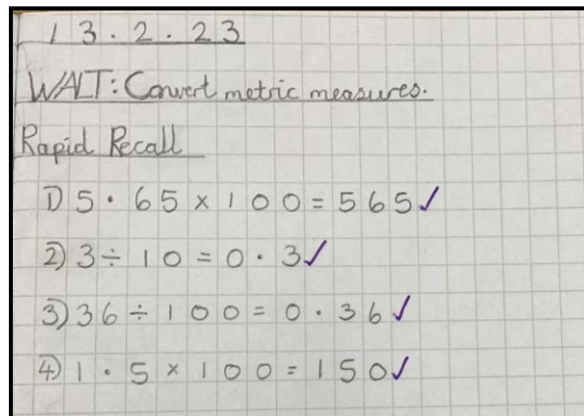 13.2.23
WALT: Convert metric measures.
Rapid Recall
1) 5.65 × 100 = 565 ✓
2) 3 ÷ 10 = 0.3 ✓
3) 36 ÷ 100 = 0.36 ✓
4) 1.5 × 100 = 150 ✓